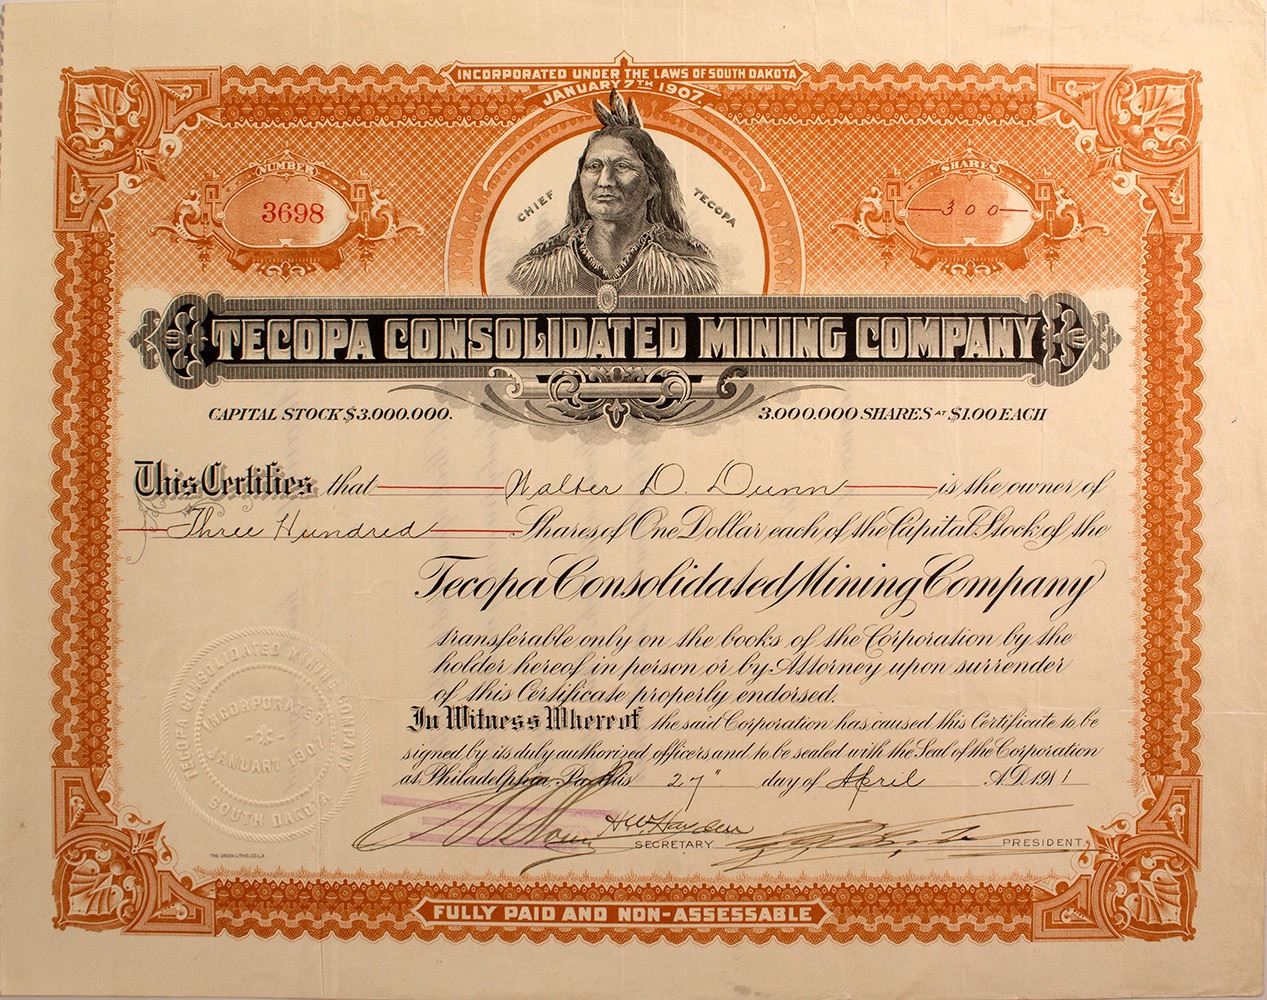 INCORPORATED UNDER THE LAWS OF SOUTH DAKOTA
JANUARY 7TH 1907.
NUMBER
3698
CHIEF TECOPA
SHARES
300
TECOPA CONSOLIDATED MINING COMPANY
CAPITAL STOCK $3.000.000. 3.000.000 SHARES AT $1.00 EACH
This Certifies that Walter D. Dunn is the owner of
Three Hundred Shares of One Dollar each of the Capital Stock of the
Tecopa Consolidated Mining Company
transferable only on the books of the Corporation by the
holder hereof in person or by Attorney upon surrender
of this Certificate properly endorsed.
In Witness Whereof the said Corporation has caused this Certificate to be
signed by its duly authorized officers and to be sealed with the Seal of the Corporation
at Philadelphia, Pa. this 27" day of April A.D. 1911
SECRETARY PRESIDENT
TECOPA CONSOLIDATED MINING COMPANY
INCORPORATED
JANUARY 1907
SOUTH DAKOTA
THE UNION LITHO. CO. L.A.
FULLY PAID AND NON-ASSESSABLE